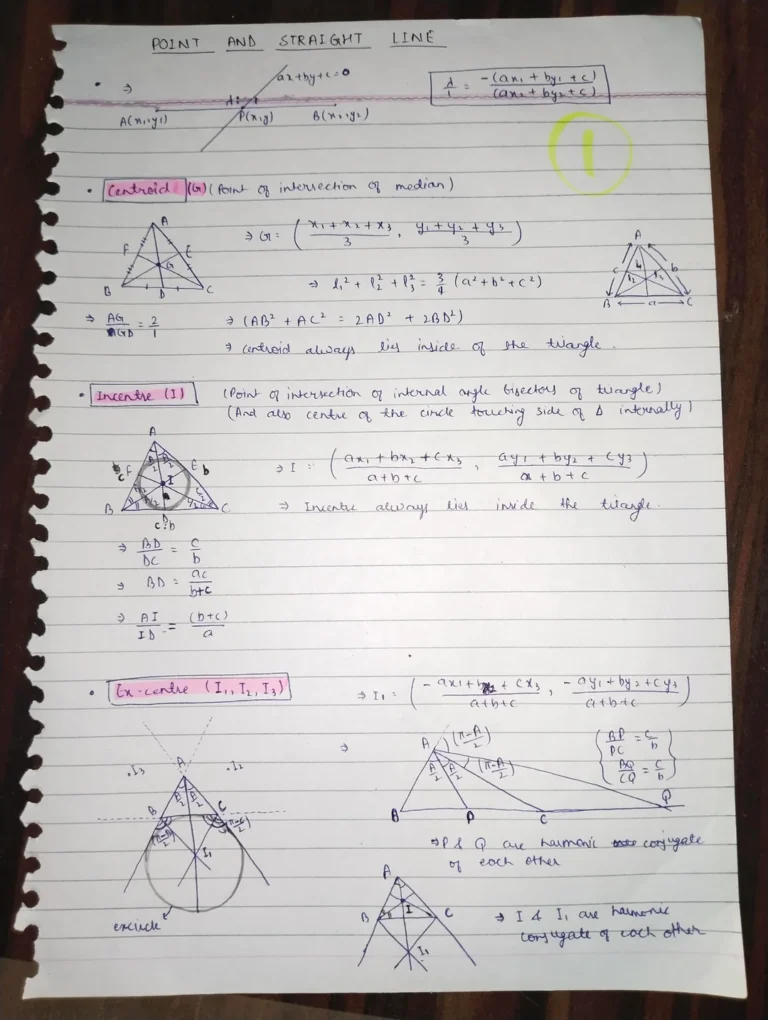 POINT AND STRAIGHT LINE
• ⇒
ax+by+c=0
λ : 1
A(x₁,y₁) P(x,y) B(x₂,y₂)
λ/1 = -(ax₁ + by₁ + c)/(ax₂ + by₂ + c)
1
• Centroid (G) (Point of intersection of median)
A F E G B D C
⇒ G = ( (x₁ + x₂ + x₃)/3 , (y₁ + y₂ + y₃)/3 )
⇒ l₁² + l₂² + l₃² = 3/4 (a² + b² + c²)
A c b l₁ l₂ l₃ B a C
⇒ AG/GD = 2/1 ⇒ (AB² + AC² = 2AD² + 2BD²)
⇒ centroid always lies inside of the triangle.
• Incentre (I) (Point of intersection of internal angle bisectors of triangle)
(And also centre of the circle touching side of Δ internally)
A
c F E b I
B D C
c:b
⇒ I = ( (ax₁ + bx₂ + cx₃)/(a+b+c) , (ay₁ + by₂ + cy₃)/(a+b+c) )
⇒ Incentre always lies inside the triangle.
⇒ BD/DC = c/b
⇒ BD = ac/(b+c)
⇒ AI/ID = (b+c)/a
• Ex-centre (I₁, I₂, I₃) ⇒ I₁ = ( (-ax₁ + bx₂ + cx₃)/(a+b+c) , (-ay₁ + by₂ + cy₃)/(a+b+c) )
.I₃ .I₂
A A/2 A/2
B C
(π-B/2) (π-C/2)
I₁
excircle
⇒
A (π-A/2)
A/2 A/2 (π-A/2)
B P C Q
{ BP/PC = c/b
BQ/CQ = c/b }
⇒ P & Q are harmonic conjugate
of each other
A
B I C
I₁
⇒ I & I₁ are harmonic
conjugate of each other